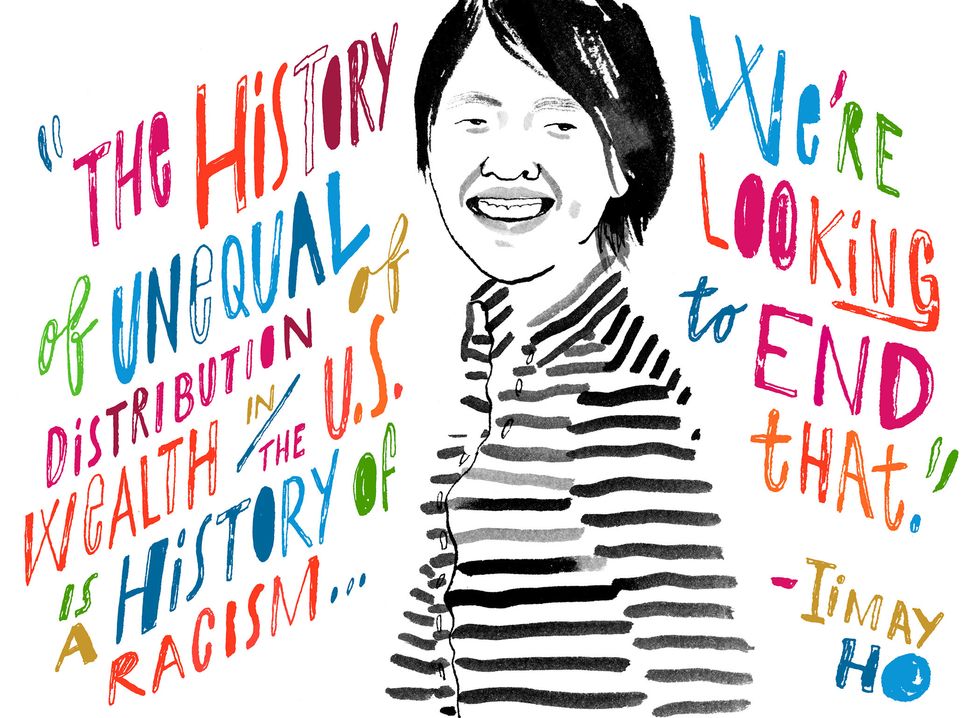 "THE HiSTORY
of UNeQUAL
DiSTRIBUTION of
WeALTH IN / THE U.S.
iS A HiSTORY OF
RACISM...
We'RE
LOOKiNG
to END
tHAt."
-IiMAY
HO